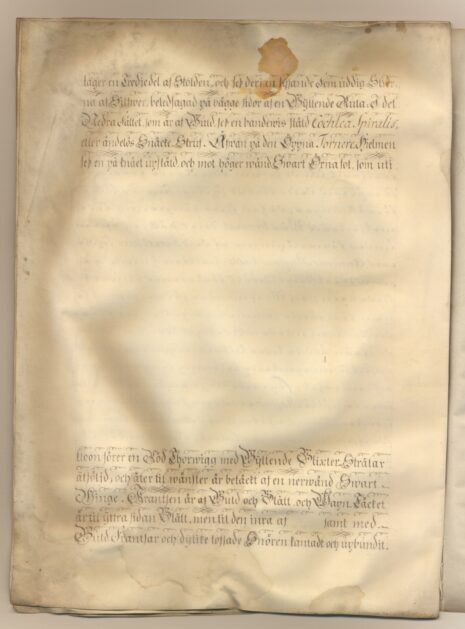 tager en Trediedel af Skölden, och ses deri en lysande Sexuddig Stier-
na af Silfwer, beledsagad på bägge sidor af en Gyllende Ruta. I det
Nedra Fältet, som är af Guld ses en bandewis stäld Cochlea Spiralis,
eller ändelös Snäcke Skruf. Ofwan på den Öppna Tornere Hielmen
ses en på knäet upstäld, och mot höger wänd Swart Örna fot, som uti
kloen förer en Röd Thorwigg med Gyllende Blixter Strålar
åtföljd, och åter til wänster är betäckt af en nerwänd Swart
Winge. Krantsen är af Guld och Blått, och Wapn Täcket
är til yttra sidan Blått, men til den inra af samt med
Guld Frantsar och dylike tofsade Snören kantadt och upbundit.